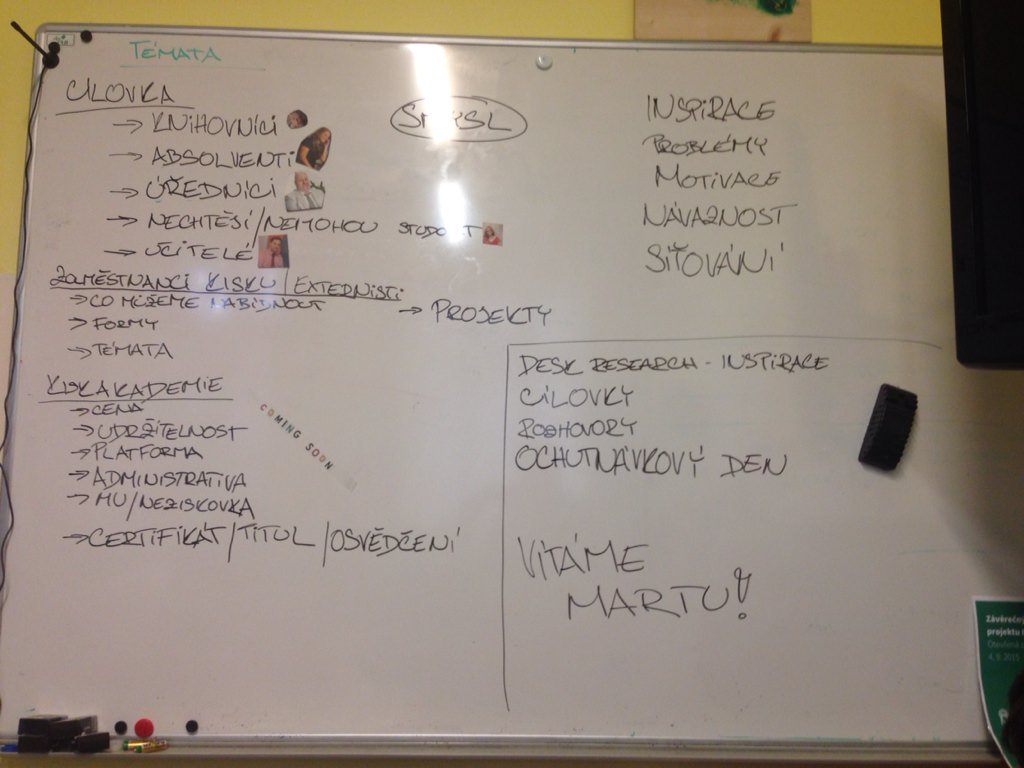 TÉMATA
CÍLOVKA
→ KNIHOVNÍCI
→ ABSOLVENTI
→ ÚŘEDNÍCI
→ NECHTĚJÍ/NEMOHOU STUDOVAT
→ UČITELÉ
ZAMĚSTNANCI KISKU/EXTERNISTI
→ CO MŮŽEME NABÍDNOUT
→ PROJEKTY
→ FORMY
→ TÉMATA
KISKAKADEMIE
→ CENA
→ UDRŽITELNOST
→ PLATFORMA
→ ADMINISTRATIVA
→ MU/NEZISKOVKA
→ CERTIFIKÁT/TITUL/OSVĚDČENÍ
COMING SOON
SMYSL
INSPIRACE
PROBLÉMY
MOTIVACE
NÁVAZNOST
SÍŤOVÁNÍ
DESK RESEARCH - INSPIRACE
CÍLOVKY
ROZHOVORY
OCHUTNÁVKOVÝ DEN
VÍTÁME
MARTU!
Závěrečný
projektu
Otevřená
4. 9. 2015